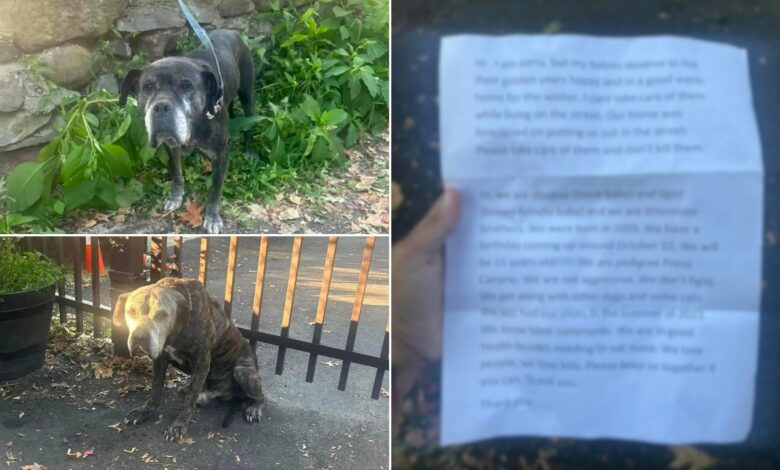 Hi.. I am sorry, but my babies deserve to live
their golden years happy and in a good warm
home for the winter. I cant take care of them
while living on the street. Our home was
foreclosed on putting us out in the street.
Please take care of them and don't kill them.
Hi, we are shadow (black baby) and tiger
(brown brindle baby) and we are litter mate
brothers. We were born in 2009. We have a
birthday coming up on October 12. We will
be 15 years old!!! We are pedigree Presa
Canario. We are not aggressive. We don't fight.
We get along with other dogs and some cats.
We last had our shots in the summer of 2023.
We know basic commands. We are in good
health besides needing to eat more. We love
people, we love kids. Please keep us together if
you can. Thank you.
Thank you.